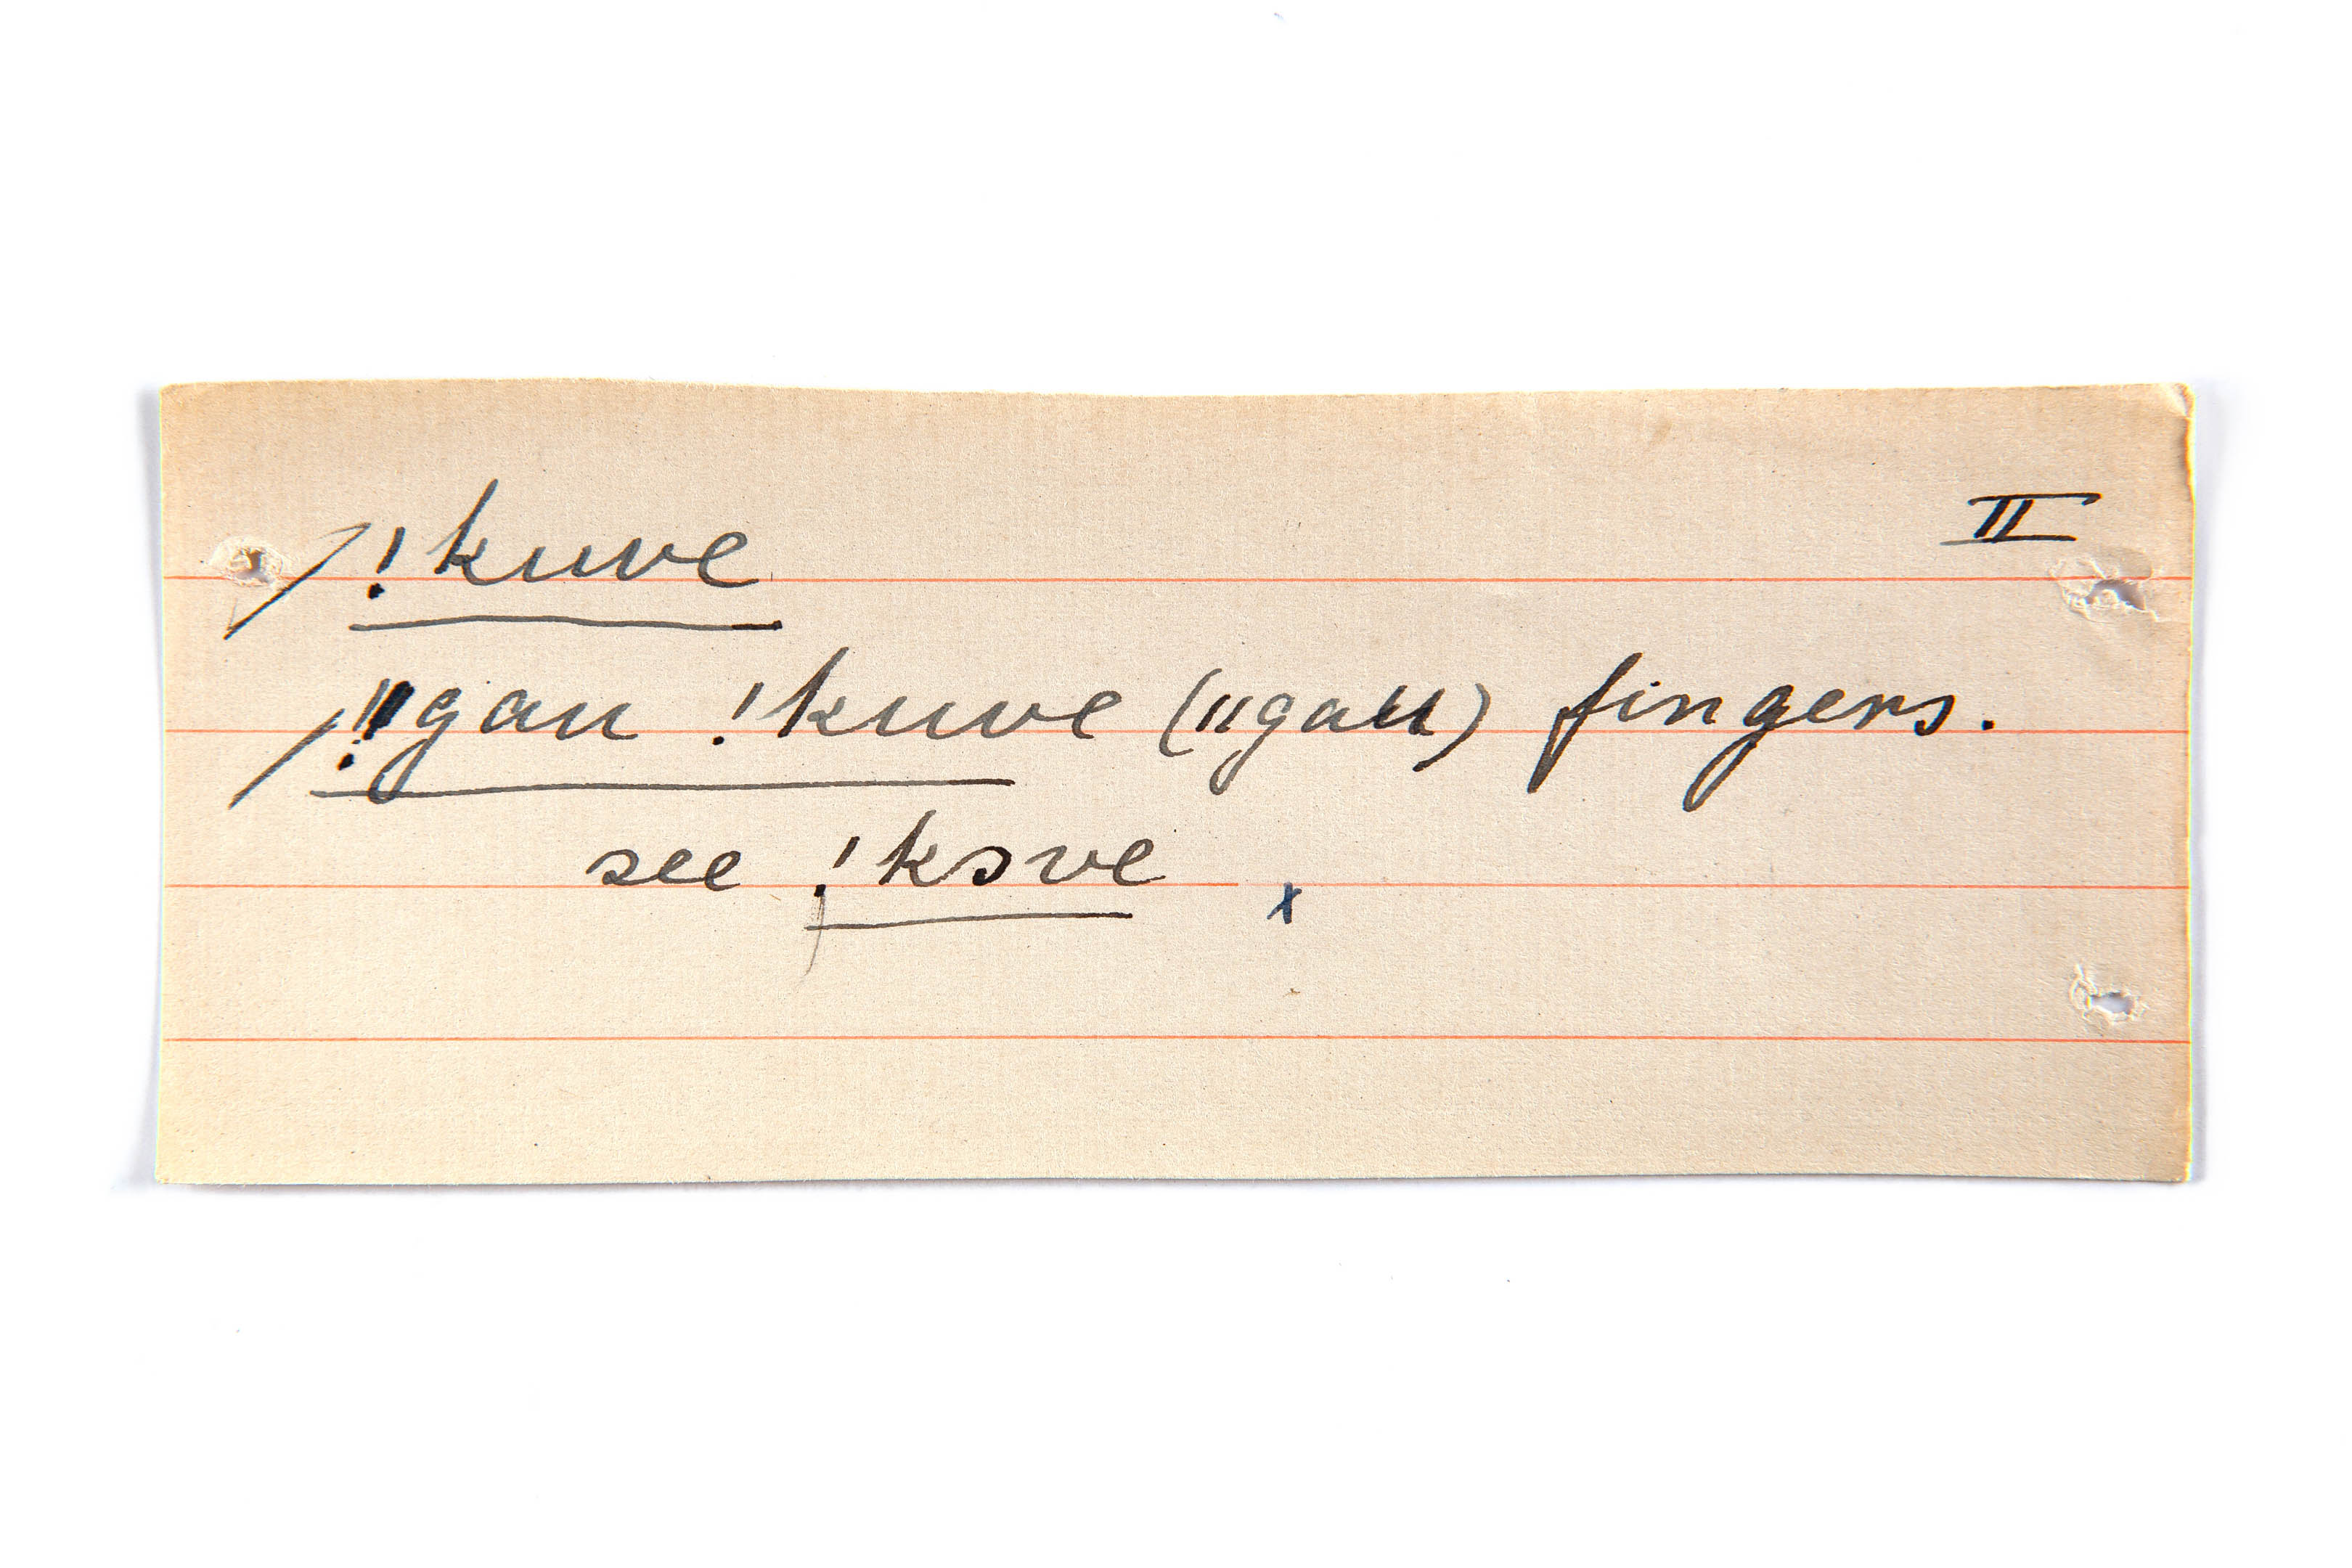 II
!kuve
ǁgau !kuve (ǁgau) fingers.
see !kɔve x